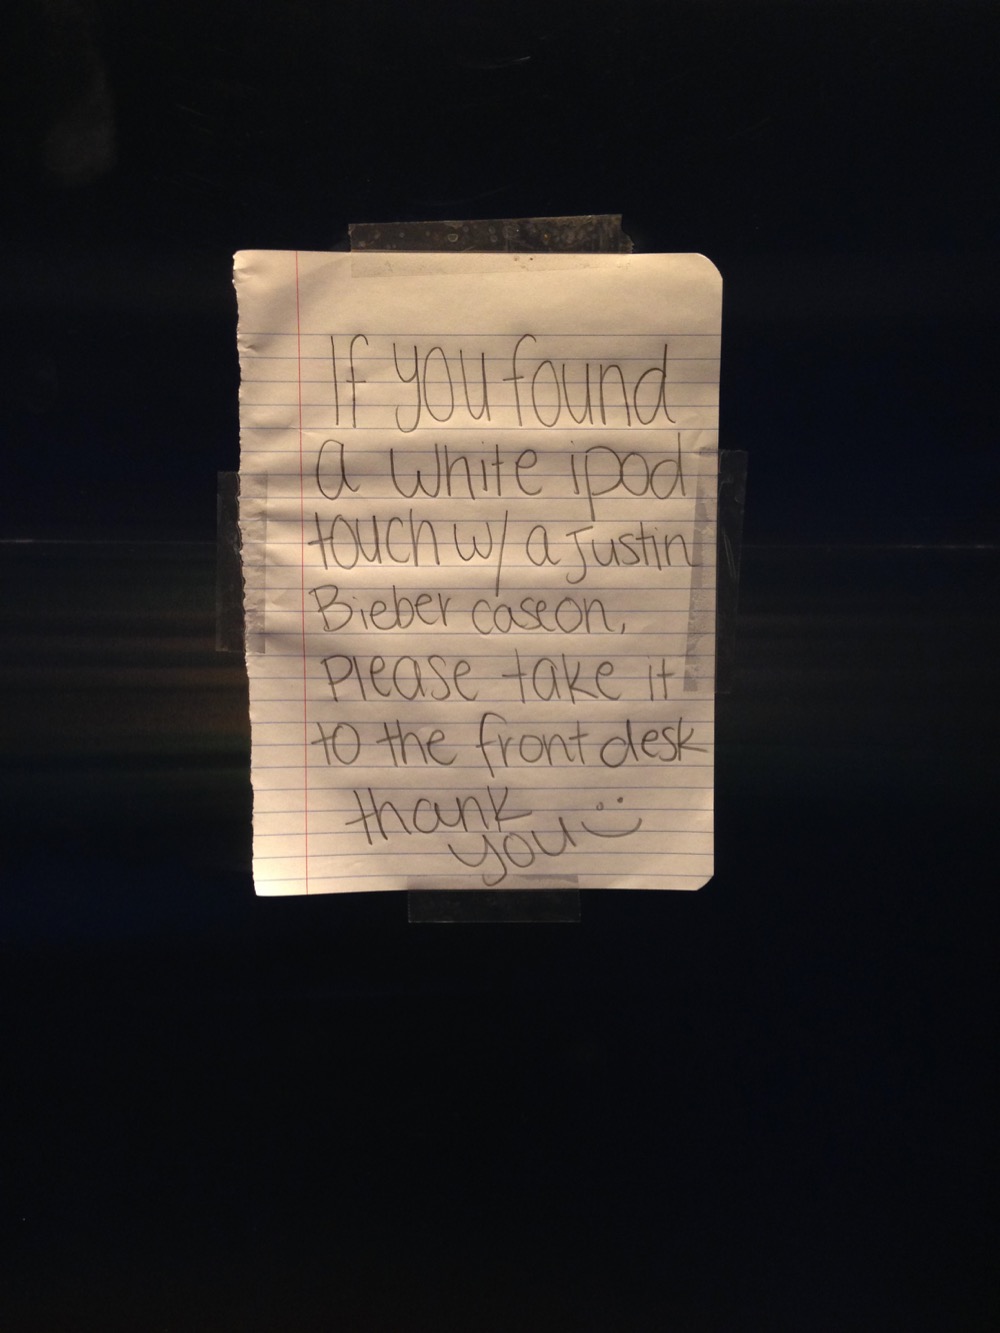 If you found
a white ipod
touch w/ a Justin
Bieber case on,
please take it
to the front desk
thank
you :)